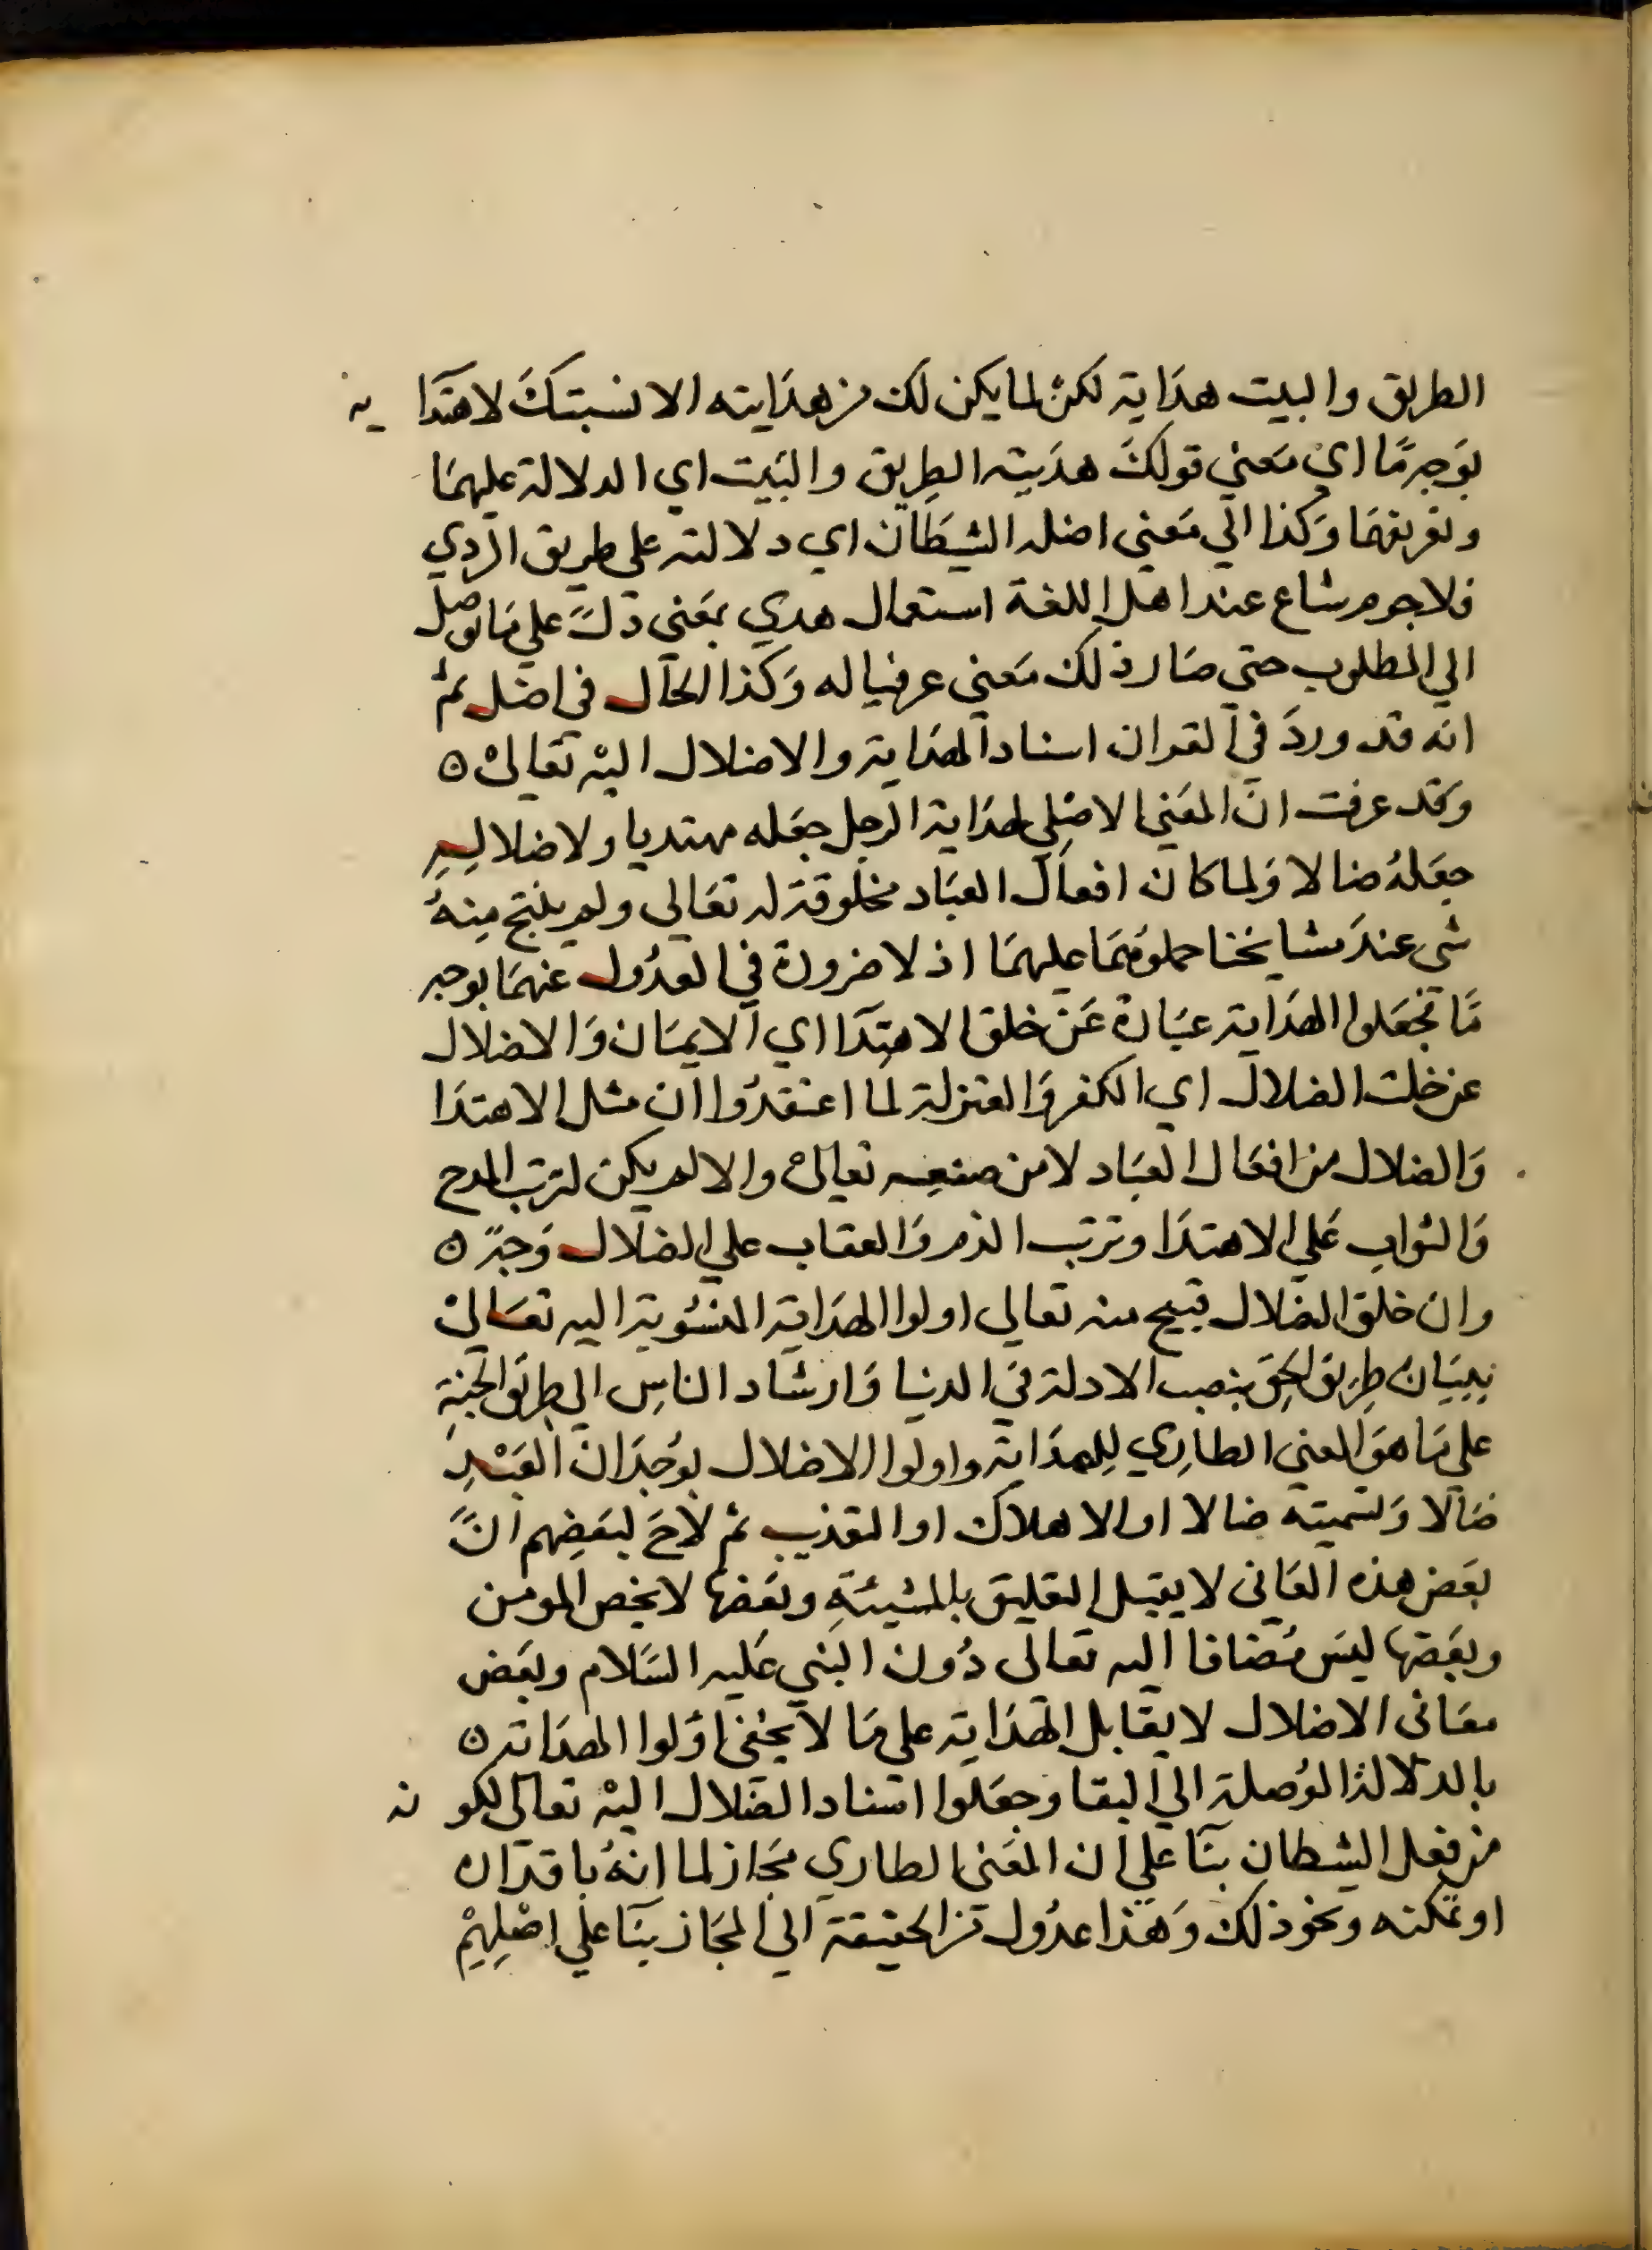 الطريق والبيت هداية لكن لما يكن لك من هدايته الا نسبتك لاهتدا يه
بوجه ما اي معني قولك هديته الطريق والبيت اي الدلالة عليهما
وتعريفهما وكذا الي معني اضله الشيطان اي دلالته علي طريق الردي
فلا جرم شاع عند اهل اللغة استعمال هدي بمعني دل علي ما يوصل
الي المطلوب حتي صار ذلك معني عرفيا له وكذا الحال في اضل ثم
انه قد ورد في القران اسناد الهداية والاضلال اليه تعالي ه
وقد عرفت ان المعني الاصلي لهداية الرجل جعله مهتديا ولاضلاله
جعله ضالا ولما كان افعال العباد مخلوقة له تعالي ولم يقبح منه
شي عند مشايخنا حملوهما عليهما اذ لا ضرورة في العدول عنهما بوجه
ما فجعلوا الهداية عبارة عن خلق الاهتدا اي الايمان والاضلال
عن خلق الضلال اي الكفر والمعتزلة لما اعتقدوا ان مثل الاهتدا
والضلال من افعال العباد لا من صنعه تعالي والا لم يكن لترتب المدح
والثواب علي الاهتدا وترتب الذم والعقاب علي الضلال وجه ه
وان خلق الضلال قبيح منه تعالي اولوا الهداية المنسوبة اليه تعالي
ببيان طريق الحق بنصب الادلة في الدنيا وارشاد الناس الي طريق الجنة
علي ما هو المعني الطاري للهداية واولوا الاضلال بوجدان العبد
ضالا وتسميته ضالا او الاهلاك او التعذيب ثم لاح لبعضهم ان
بعض هذه المعاني لا يقبل التعليق بالمشيئة وبعضها لا يخص المومن
وبعضها ليس مضافا اليه تعالي دون النبي عليه السلام وبعض
معاني الاضلال لا يقابل الهداية علي ما لا يخفي اولوا الهداية ه
بالدلالة الموصلة الي البقا وجعلوا اسناد الضلال اليه تعالي لكو نه
من فعل الشيطان بنا علي ان المعني الطاري مجاز لما انه باقداره
او تمكنه ونحو ذلك وهذا عدول من الحقيقة الي المجاز بنا علي اصلهم